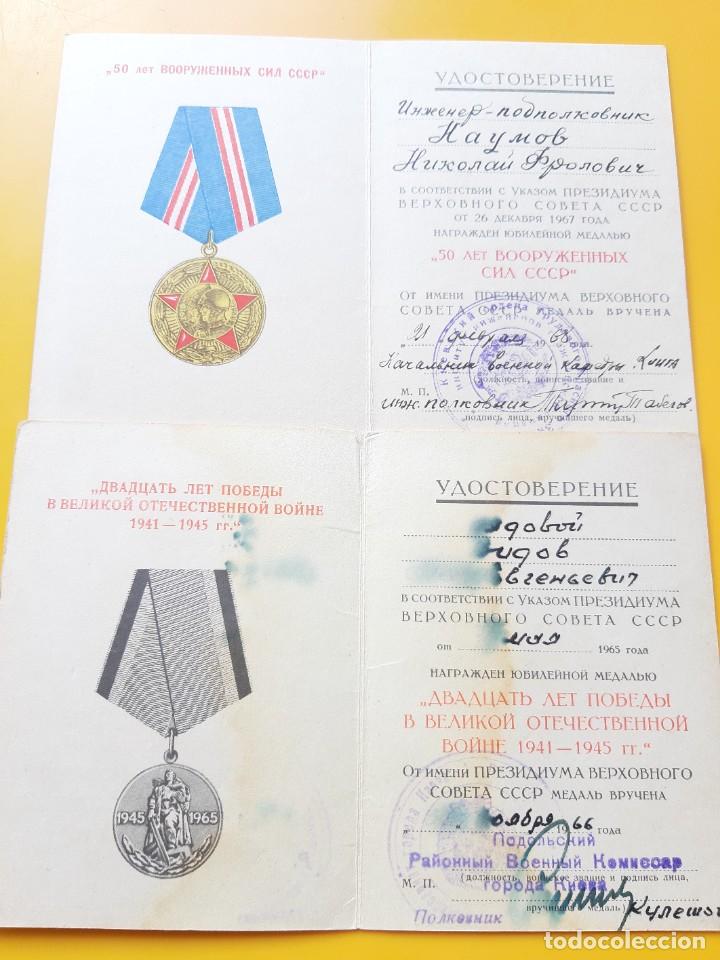 „50 лет ВООРУЖЕННЫХ СИЛ СССР“
УДОСТОВЕРЕНИЕ
Инженер-подполковник
Наумов
Николай Фролович
в соответствии с Указом ПРЕЗИДИУМА
ВЕРХОВНОГО СОВЕТА СССР
от 26 декабря 1967 года
награжден юбилейной медалью
„50 лет ВООРУЖЕННЫХ
СИЛ СССР“
От имени ПРЕЗИДИУМА ВЕРХОВНОГО
СОВЕТА СССР медаль вручена
21 февраля 1968 года.
Начальник военной кафедры
(должность, воинское звание и
М. П.
инж. полковник
подпись лица, вручившего медаль)
„ДВАДЦАТЬ ЛЕТ ПОБЕДЫ
В ВЕЛИКОЙ ОТЕЧЕСТВЕННОЙ ВОЙНЕ
1941—1945 гг.“
1945 1965
УДОСТОВЕРЕНИЕ
довой
идов
вгеньевич
в соответствии с Указом ПРЕЗИДИУМА
ВЕРХОВНОГО СОВЕТА СССР
от мая 1965 года
награжден юбилейной медалью
„ДВАДЦАТЬ ЛЕТ ПОБЕДЫ
В ВЕЛИКОЙ ОТЕЧЕСТВЕННОЙ
ВОЙНЕ 1941—1945 гг.“
От имени ПРЕЗИДИУМА ВЕРХОВНОГО
СОВЕТА СССР медаль вручена
оября 1966 года
Подольский
Районный Военный Комиссар
(должность, воинское звание и подпись лица,
М. П. города Киева
вручившего медаль)
Полковник Кулешо
todocoleccion
todocoleccion.net